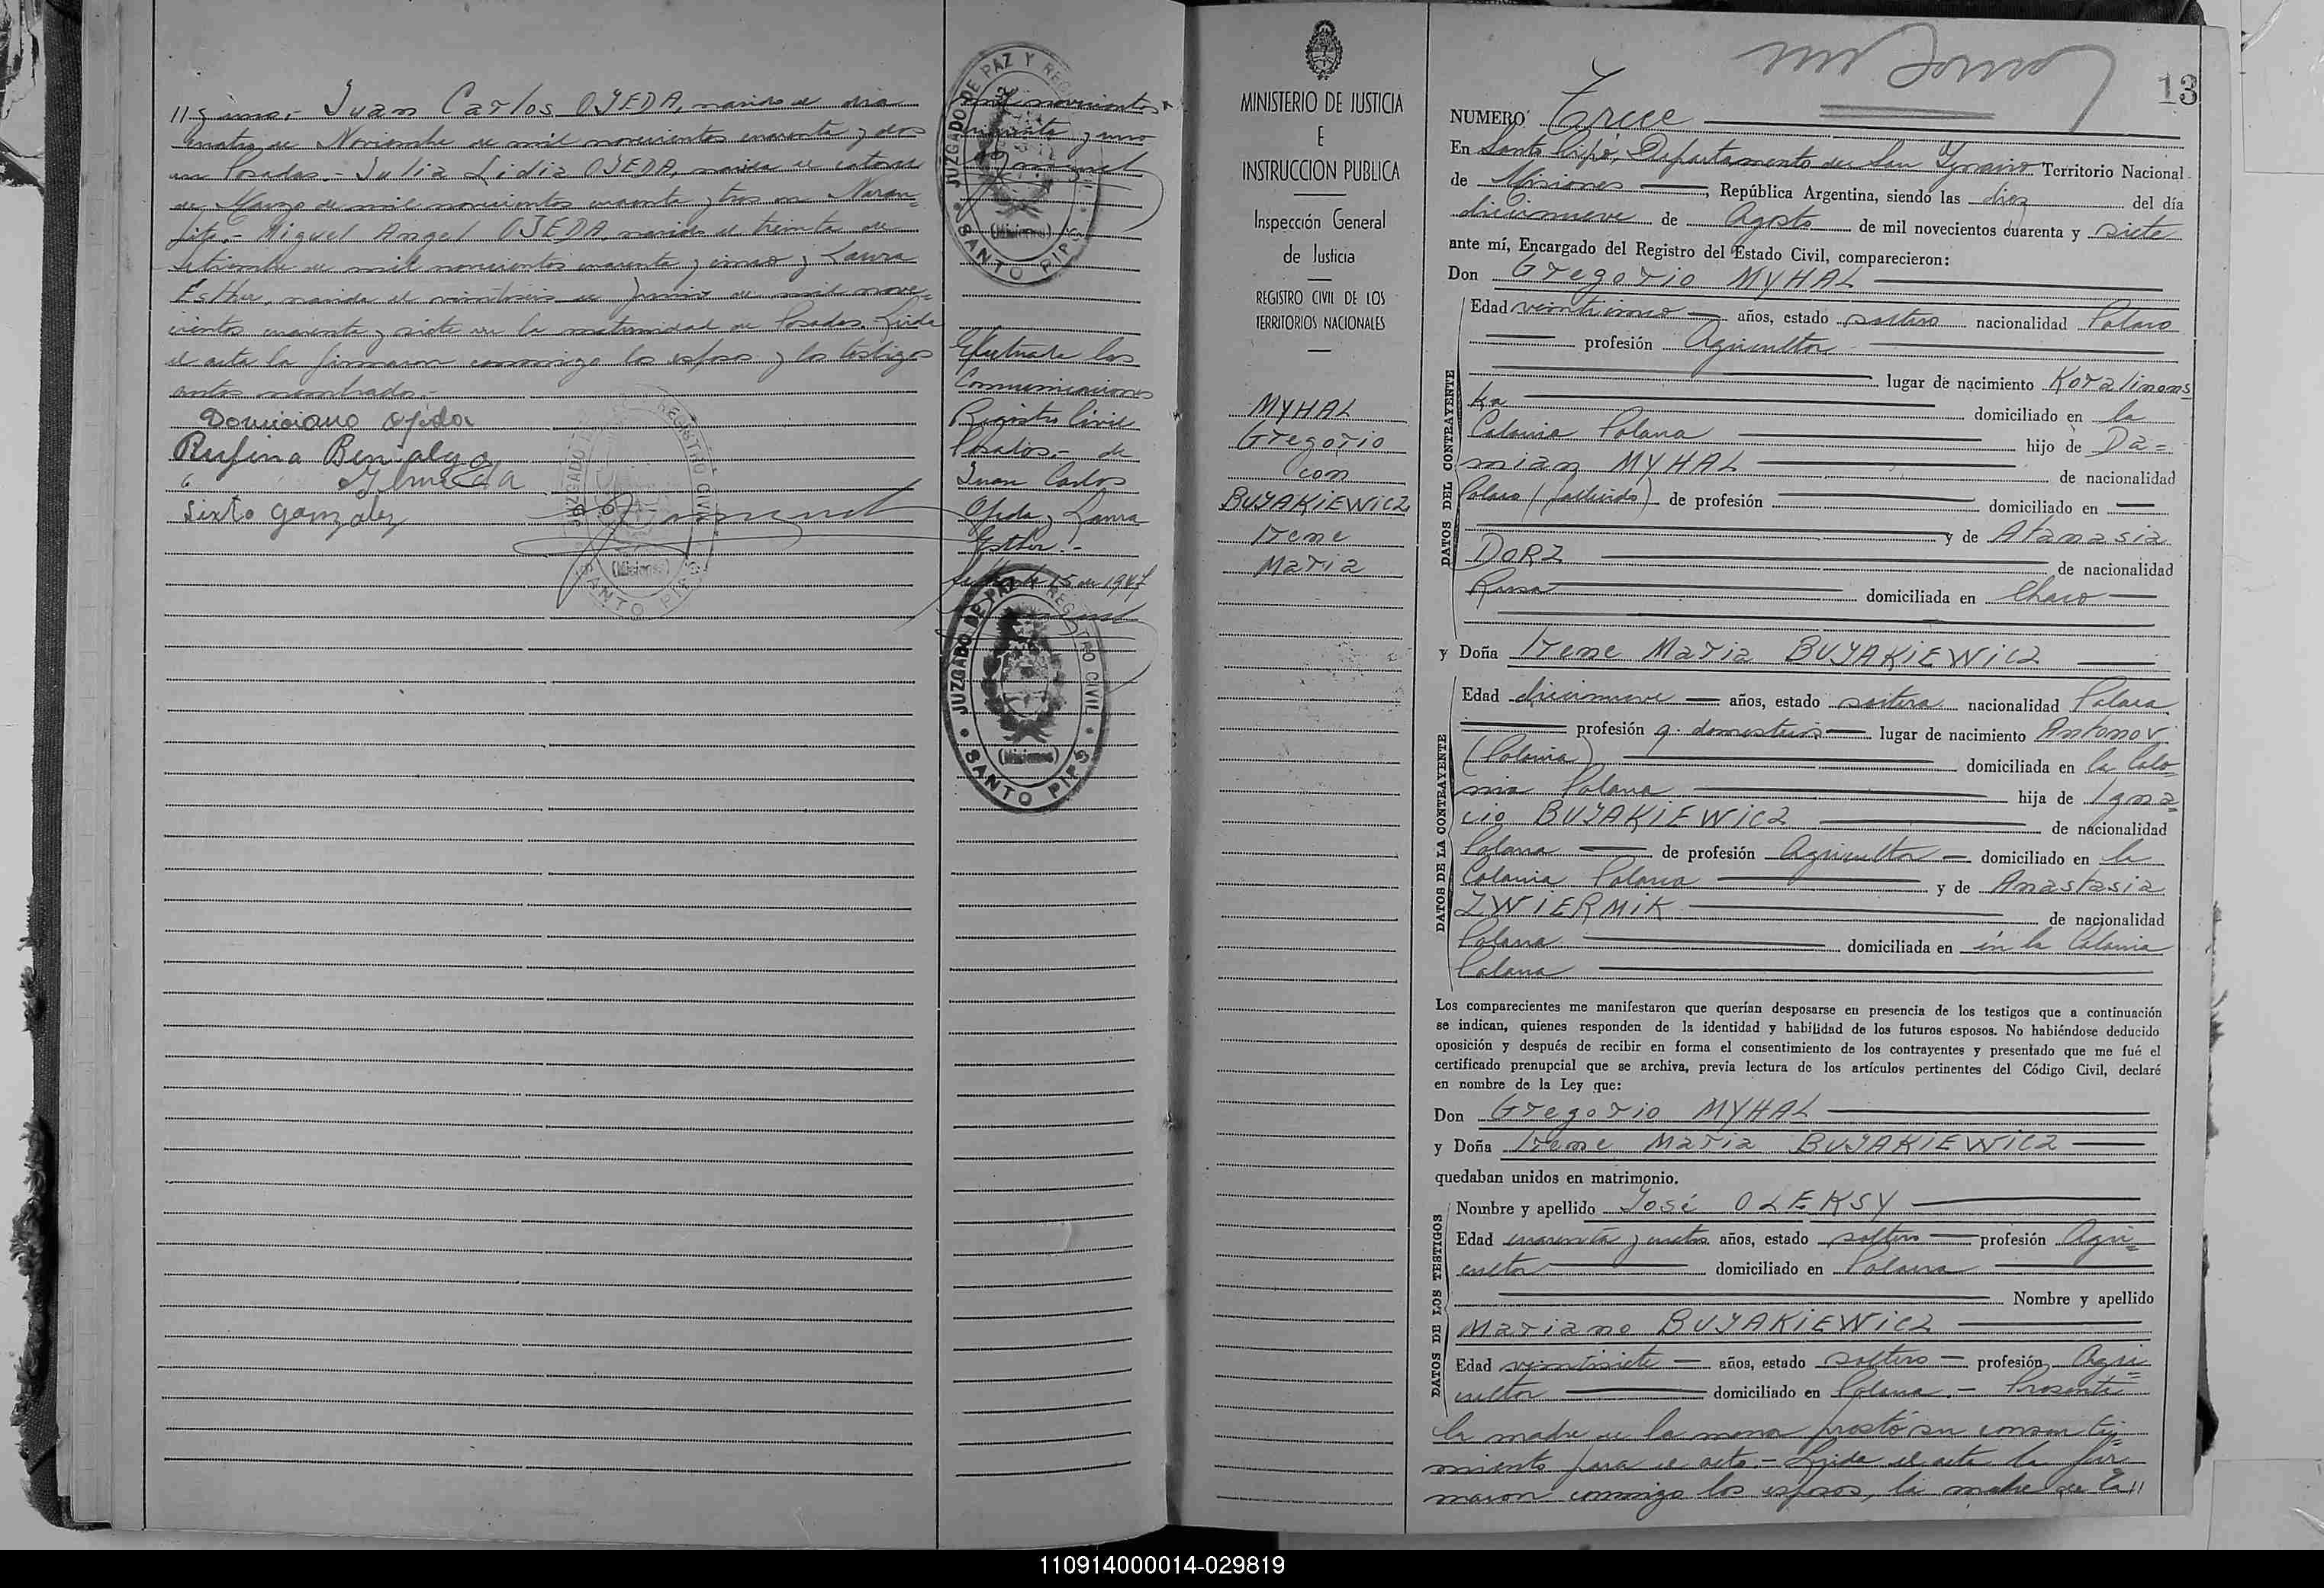 // guno.- Juan Carlos OJEDA, nacido el dia
cuatro de Noviembre de mil novecientos cuarenta y dos
en Posadas.- Julia Lidia OJEDA, nacida el catorce
de Marzo de mil novecientos cuarenta y tres en Naran-
jito.- Miguel Angel OJEDA, nacido el treinta de
Setiembre de mil novecientos cuarenta y cinco y Laura
Esther, nacida el veintiseis de Junio de mil nove-
cientos cuarenta y siete en la maternidad de Posadas. Leida
el acta la firmaron conmigo los esposos y los testigos
antes nombrados.-
Domiciano Ojeda
Rufina Benialgo
Sixto Gonzalez
JUZGADO DE PAZ Y REGISTRO CIVIL
(Misiones)
SANTO PIPO
mil novecientos
cuarenta y uno
JUZGADO DE PAZ Y REG
(Misiones)
SANTO PIPO
Efectuada las
Comunicaciones
Registro Civil
Posadas.- de
Juan Carlos
Ojeda y Laura
Esther.-
15 de 1947
JUZGADO DE PAZ Y REGISTRO CIVIL
(Misiones)
SANTO PIPO
MINISTERIO DE JUSTICIA
E
INSTRUCCION PUBLICA
Inspección General
de Justicia
REGISTRO CIVIL DE LOS
TERRITORIOS NACIONALES
MYHAL
Gregorio
con
BUJAKIEWICZ
Irene
Maria
13
NUMERO Trece
En Santo Pipó, Departamento de San Ignacio Territorio Nacional
de Misiones, República Argentina, siendo las diez del día
diecinueve de Agosto de mil novecientos cuarenta y siete
ante mí, Encargado del Registro del Estado Civil, comparecieron:
Don Gregorio MYHAL
DATOS DEL CONTRAYENTE
Edad veinticinco años, estado soltero nacionalidad Polaco
profesión Agricultor
lugar de nacimiento Koralinons
ka domiciliado en la
Colonia Polana hijo de Da=
mian MYHAL de nacionalidad
Polaco (fallecido) de profesión domiciliado en
y de Atanasia
DORZ de nacionalidad
Rusa domiciliada en Chaco
y Doña Irene Maria BUJAKIEWICZ
DATOS DE LA CONTRAYENTE
Edad diecinueve años, estado soltera nacionalidad Polaca
profesión q. domesticos lugar de nacimiento Antonov
(Polonia) domiciliada en la Colo-
nia Polana hija de Igna=
cio BUJAKIEWICZ de nacionalidad
Polaca de profesión Agricultor domiciliado en la
Colonia Polana y de Anastasia
ZWIERMIK de nacionalidad
Polaca domiciliada en en la Colonia
Polana
Los comparecientes me manifestaron que querían desposarse en presencia de los testigos que a continuación
se indican, quienes responden de la identidad y habilidad de los futuros esposos. No habiéndose deducido
oposición y después de recibir en forma el consentimiento de los contrayentes y presentado que me fué el
certificado prenupcial que se archiva, previa lectura de los artículos pertinentes del Código Civil, declaré
en nombre de la Ley que:
Don Gregorio MYHAL
y Doña Irene Maria BUJAKIEWICZ
quedaban unidos en matrimonio.
DATOS DE LOS TESTIGOS
Nombre y apellido José OLEKSY
Edad cuarenta y cuatro años, estado soltero profesión Agri=
cultor domiciliado en Polana
Nombre y apellido
Mariano BUJAKIEWICZ
Edad veintisiete años, estado soltero profesión Agri=
cultor domiciliado en Polana.- Presente
la madre de la menor prestó su consenti-
miento para el acto.- Leida el acta la fir-
maron conmigo los esposos, la madre de la//
110914000014-029819